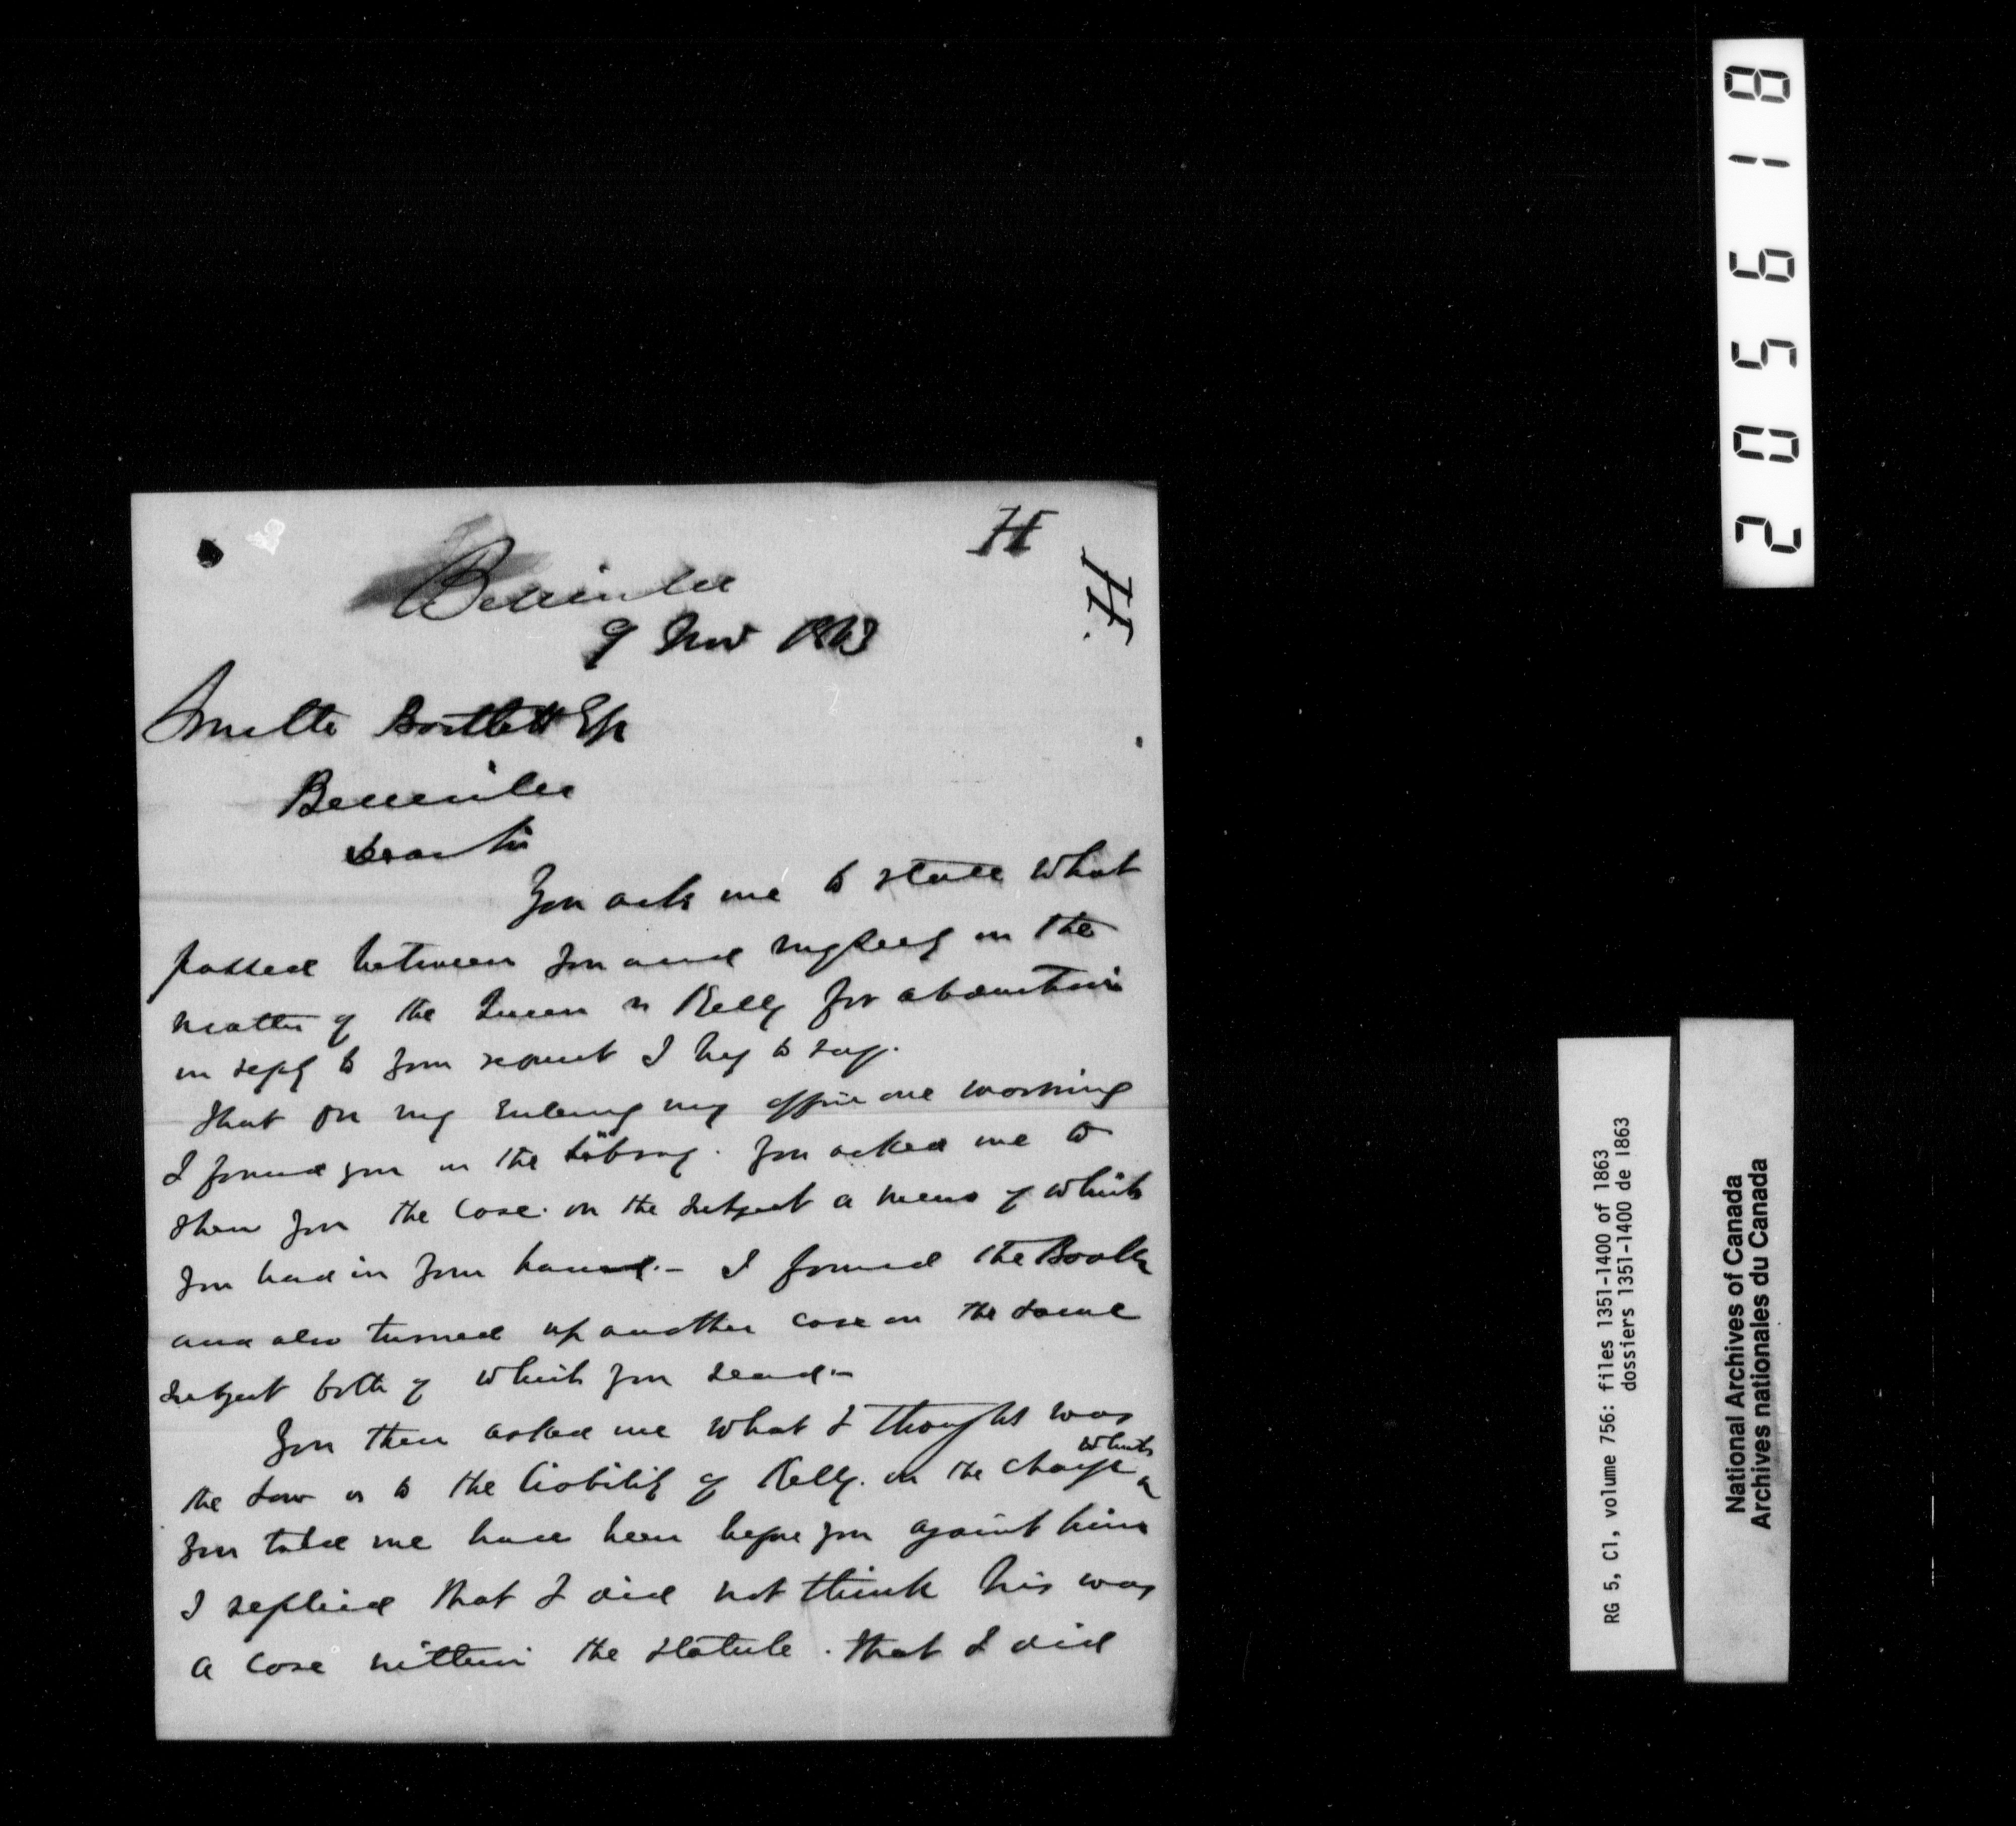 H
H.
Belleville
9 Nov 1863
Smith Bartlett Esq
Belleville
Dear Sir
You ask me to state what
passed between you and myself in the
matter of the Queen vs Kelly for abduction
in reply to your request I beg to say.
that on my entering my office one morning
I found you in the Library. you asked me to
shew you the case. on the subject a memo of which
you had in your hand.- I found the Book
and also turned up another case on the same
subject both of which you read.-
You then asked me what I thought was
the Law as to the liability of Kelly. on the charge
which
you told me have been before you against him
I replied that I did not think his was
a case within the statute. that I did
205618
RG 5, C1, volume 756: files 1351-1400 of 1863
dossiers 1351-1400 de 1863
National Archives of Canada
Archives nationales du Canada